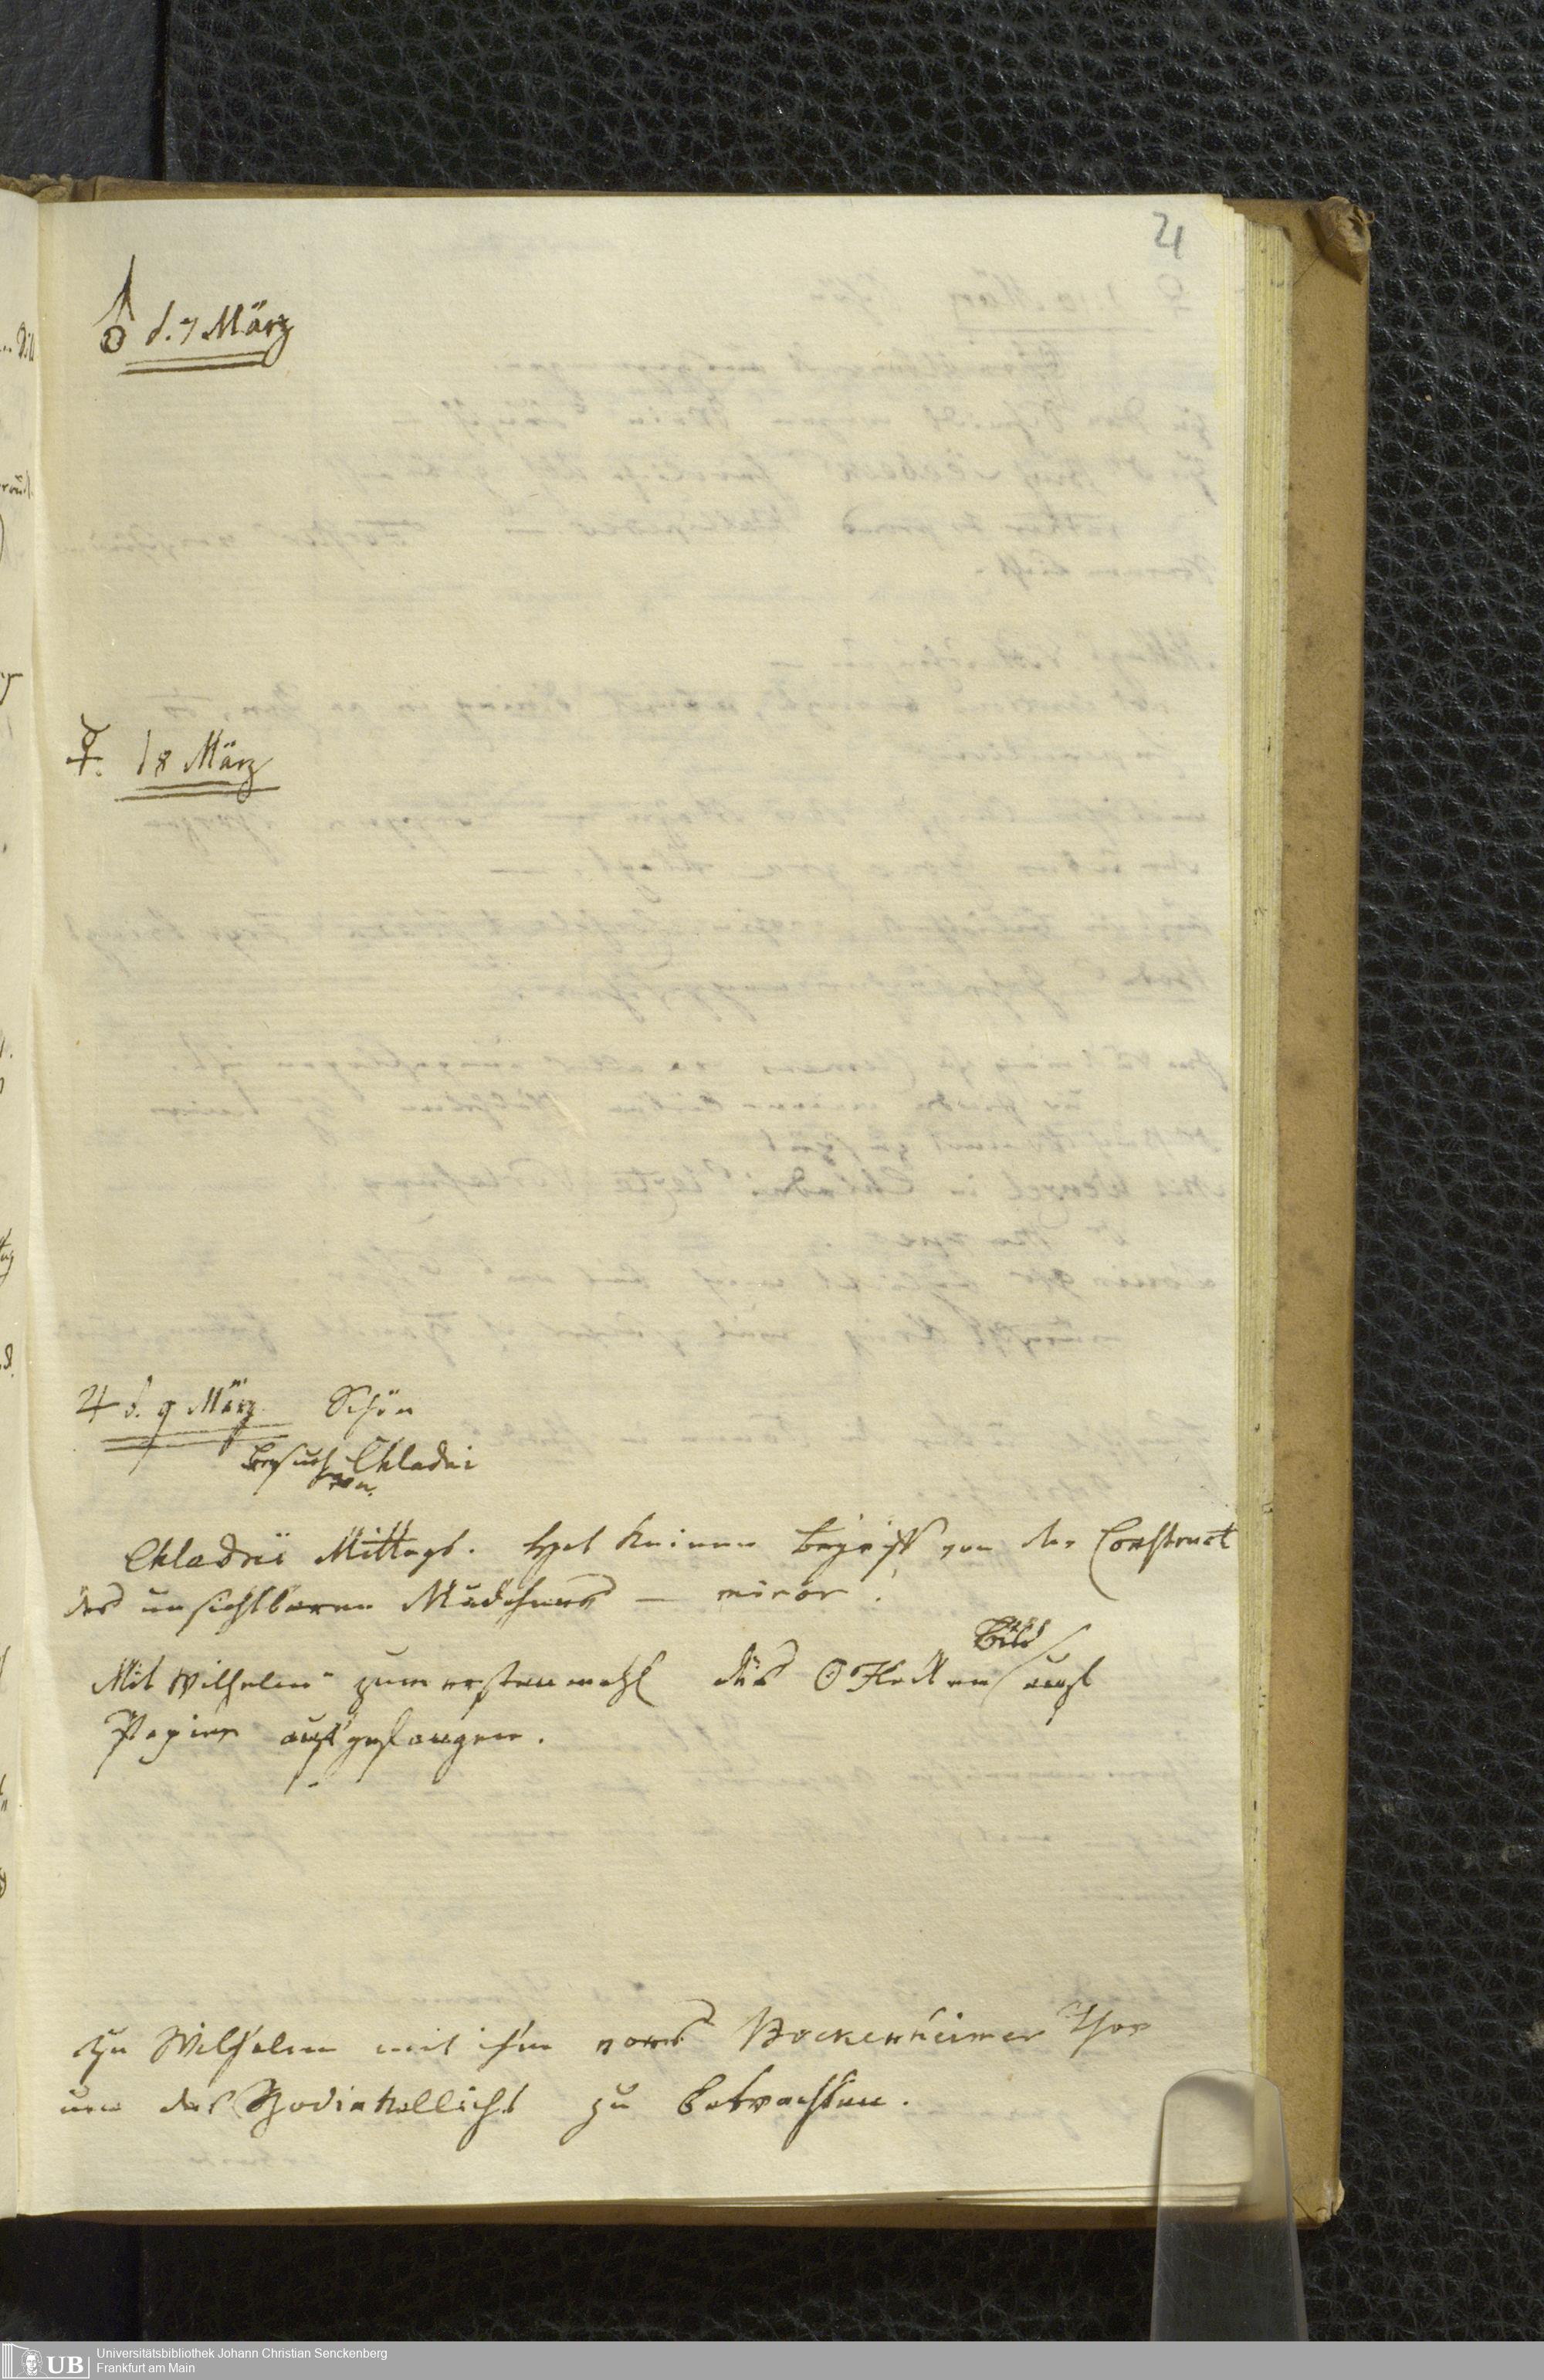 21
♂ d. 7 März
☿. d 8 März
♃ d. 9 März Schön
Besuch Chladni
von
Chladni Mittags. Hat keinen Begriff von der Construct
des unsichtbaren Mädchens — miror.
Bild
Mit Wilhelm zum erstenmahl das ☉ Flecken auf
Papier aufgefangen.
Zu Wilhelm mit ihm vors Bockenheimer Thor
um das Zodiakallicht zu betrachten.
Universitätsbibliothek Johann Christian Senckenberg
Frankfurt am Main
UB